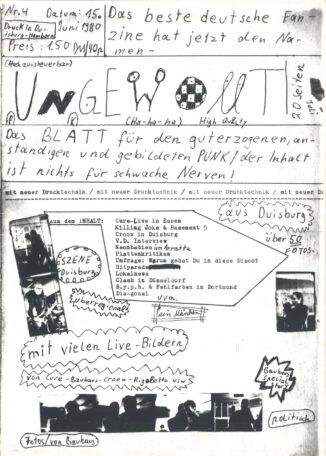 Nr.4 Datum: 15.
Juni 1980
Druck in Du-
isburg-Hamborn
Preis: 1.50 DM/40p.
Das beste deutsche Fan-
zine hat jetzt den Na-
men-
(Hochaussteuerbar)
UNGEWOLLT
(Ha-ha-ha) High Quality
20 Seiten
Das BLATT für den guterzogenen, an-
ständigen und gebildeten PUNK/der Inhalt
ist nichts für schwache Nerven!
mit neuer Drucktechnik / mit neuer Drucktechnik / mit neuer Drucktechnik / mit neuer D
aus dem INHALT:
Cure-Live in Essen
Killing Joke & Basement 5
Croox in Duisburg
V.D. Interview
Plattenkritiken
Umfrage: Warum gehst Du in diese Disco?
Hitparade
Lokalnews
Clash in Düsseldorf
S.y.p.h. & Fehlfarben in Dortmund
Dia-gonal
uvm.
aus Duisburg
über 50
FOTOS-
SZENE
Duisburg
überregional
ein Märchen
mit vielen Live-Bildern
von Cure-Bauhaus-Croox-Rigoletto usw
Bauhaus
Special
politisch
Fotos von Bauhaus